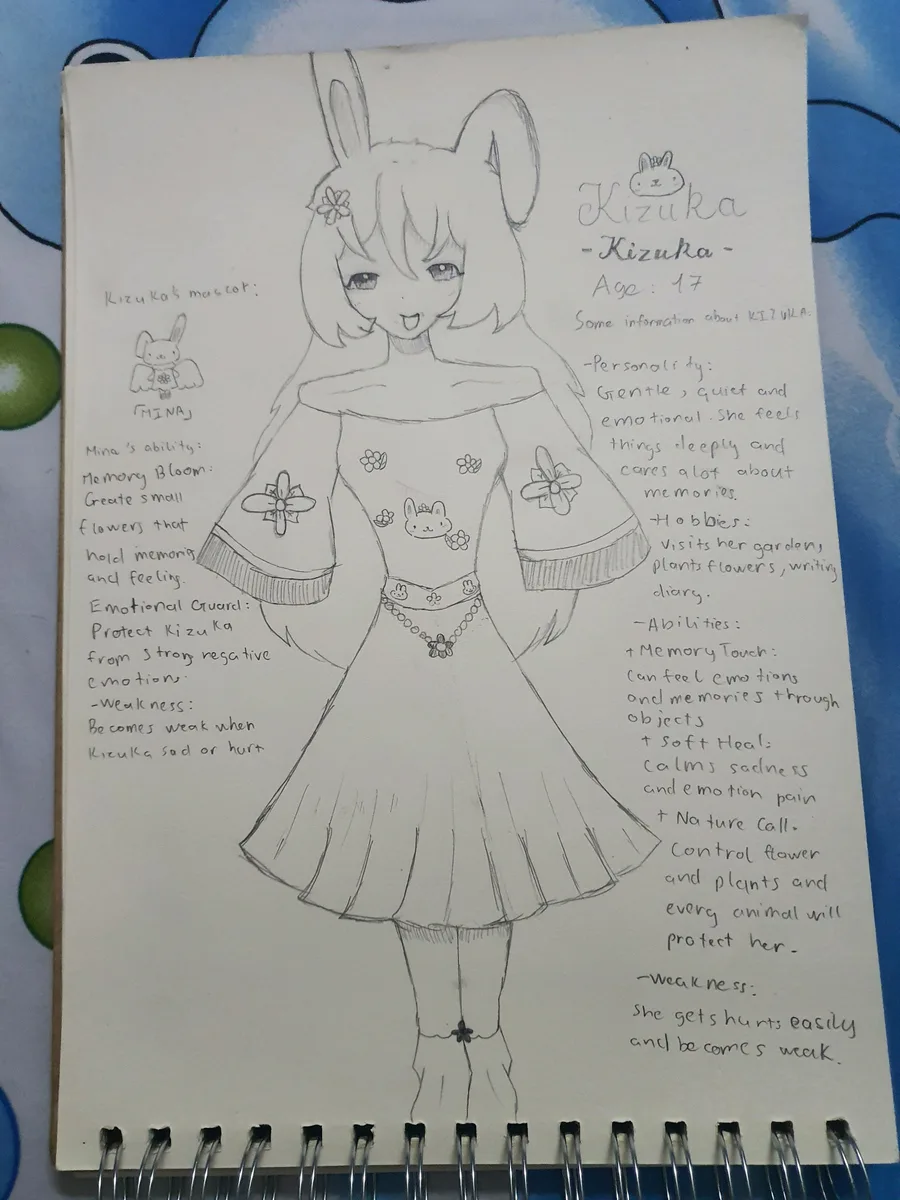 Kizuka
-Kizuka-
Age: 17
Some information about KIZUKA:
-Personality:
Gentle, quiet and
emotional. She feels
things deeply and
cares a lot about
memories.
-Hobbies:
visits her garden,
plants flowers, writing
diary.
-Abilities:
+ Memory Touch:
can feel emotions
and memories through
objects
+ Soft Heal:
calms sadness
and emotion pain
+ Nature Call.
Control flower
and plants and
every animal will
protect her.
-Weakness:
She gets hurts easily
and becomes weak.
Kizuka's mascot:
「MINA」
Mina's ability:
Memory Bloom:
Create small
flowers that
hold memoris
and feeling.
Emotional Guard:
Protect Kizuka
from strong negative
emotion.
-Weakness:
Becomes weak when
Kizuka sad or hurt